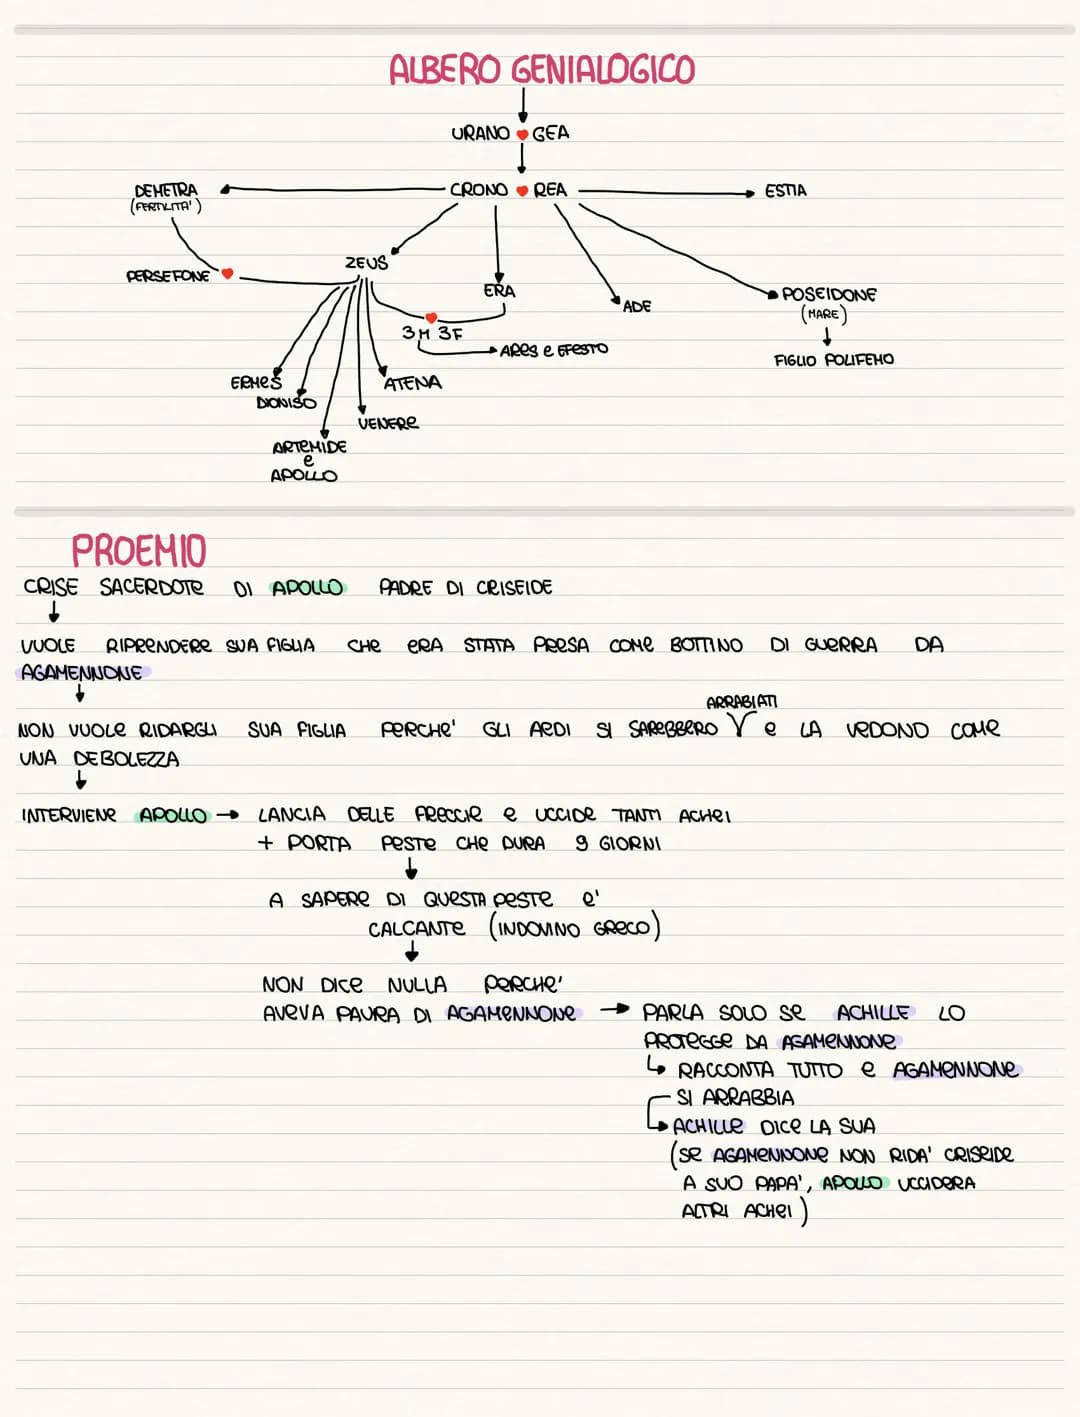 ALBERO GENIALOGICO
URANO ❤ GEA
DEMETRA CRONO ❤ REA ESTIA
(FERTILITA')
ZEUS
PERSEFONE ❤
ERA
POSEIDONE
ADE
(MARE)
❤
3M 3F
ARES e EFESTO
FIGLIO POLIFEMO
ERMES ATENA
DIONISO
VENERE
ARTEMIDE
e
APOLLO
PROEMIO
CRISE SACERDOTE DI APOLLO PADRE DI CRISEIDE
VUOLE RIPRENDERE SUA FIGLIA CHE ERA STATA PRESA COME BOTTINO DI GUERRA DA
AGAMENNONE
ARRABIATI
NON VUOLE RIDARGLI SUA FIGLIA PERCHE' GLI AEDI SI SAREBBERO e LA VEDONO COME
UNA DEBOLEZZA
INTERVIENE APOLLO → LANCIA DELLE FRECCIE e UCCIDE TANTI ACHEI
+ PORTA PESTE CHE DURA 9 GIORNI
A SAPERE DI QUESTA PESTE e'
CALCANTE (INDOVINO GRECO)
NON DICE NULLA PERCHE'
AVEVA PAURA DI AGAMENNONE → PARLA SOLO SE ACHILLE LO
PROTEGGE DA AGAMENNONE
↳ RACCONTA TUTTO e AGAMENNONE
SI ARRABBIA
ACHILLE DICE LA SUA
(SE AGAMENNONE NON RIDA' CRISEIDE
A SUO PAPA', APOLLO UCCIDERA
ALTRI ACHEI)